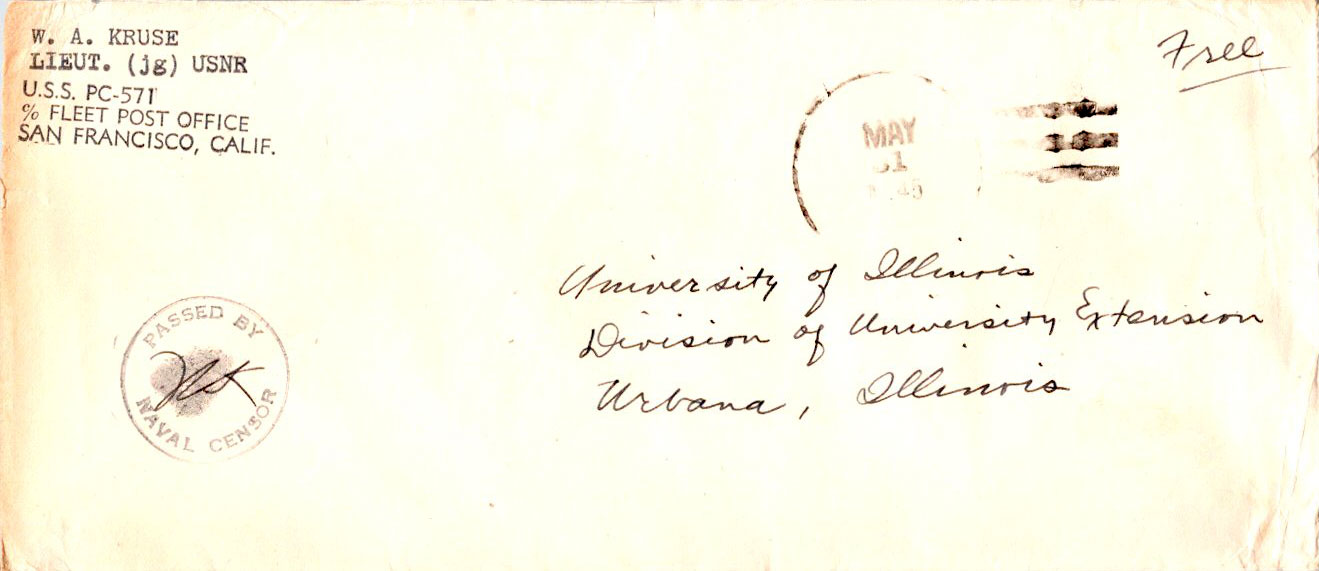 W. A. KRUSE
LIEUT. (jg) USNR
U.S.S. PC-571
% FLEET POST OFFICE
SAN FRANCISCO, CALIF.
Free
MAY
31
University of Illinois
Division of University Extension
Urbana, Illinois
PASSED BY
NAVAL CENSOR